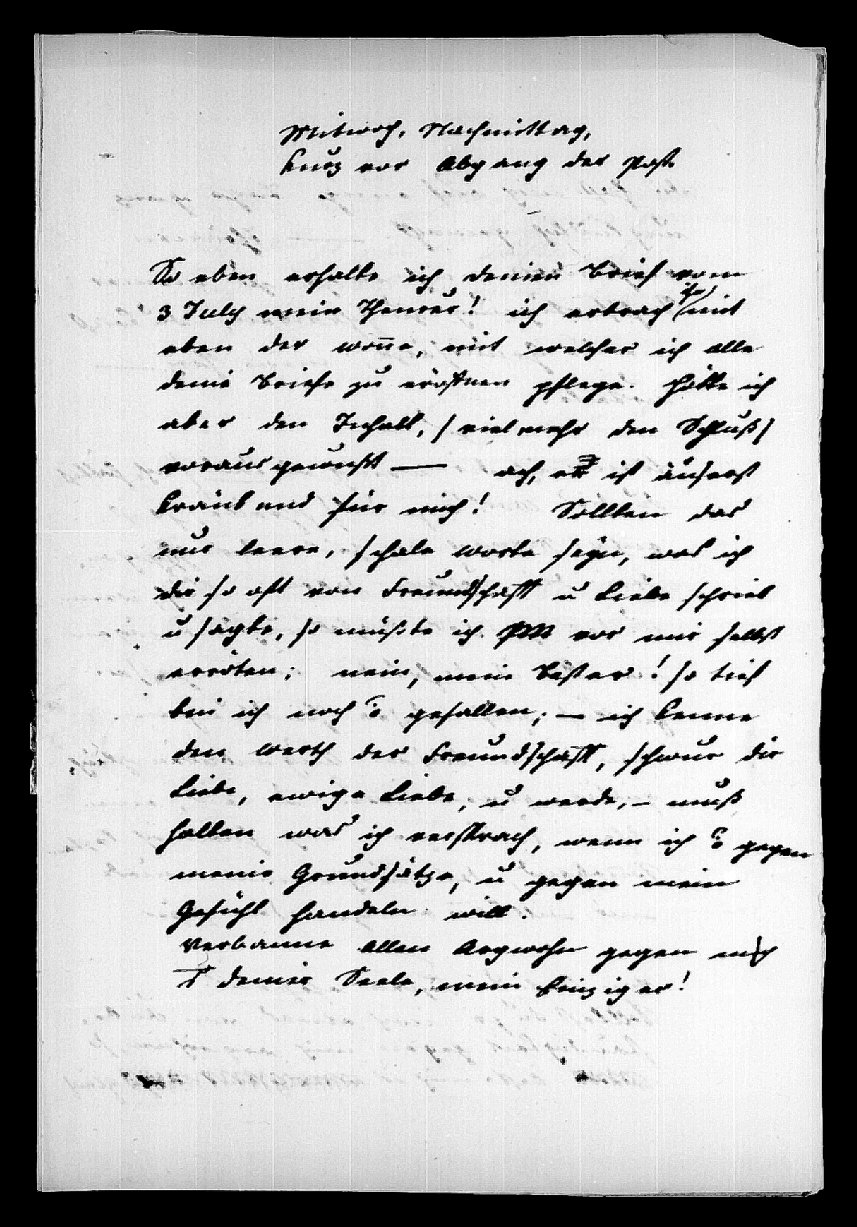 Mitwoch, Nachmittag,
kurz vor Abgang der Post
So eben erhalte ich deinen Brief vom
3 July mein Theurer! ich erbrach ihn mit
eben der wonne, mit welcher ich alle
deine Briefe zu eröffnen pflege. Hätte ich
aber den Inhalt, / vielmehr den Schluß /
voraus gewußt — ach, er ist äuserst
kränkend für mich! Sollten das
nur leere, schale worte seyn, was ich
dir so oft von Freundschafft u Liebe schrieb
u sagte, so müßte ich vor mir selbst
erröten; nein, mein Bester! so tief
bin ich noch gefallen; — ich kenne
den werth der Freundschafft, schwur dir
Liebe, ewige Liebe, u werde, – muß
halten was ich versprach, wenn ich gegen
meine Grundsätze, u gegen mein
Gefühl handeln will.
Verbanne allen Argwohn gegen mich
deiner Seele, mein Einziger!